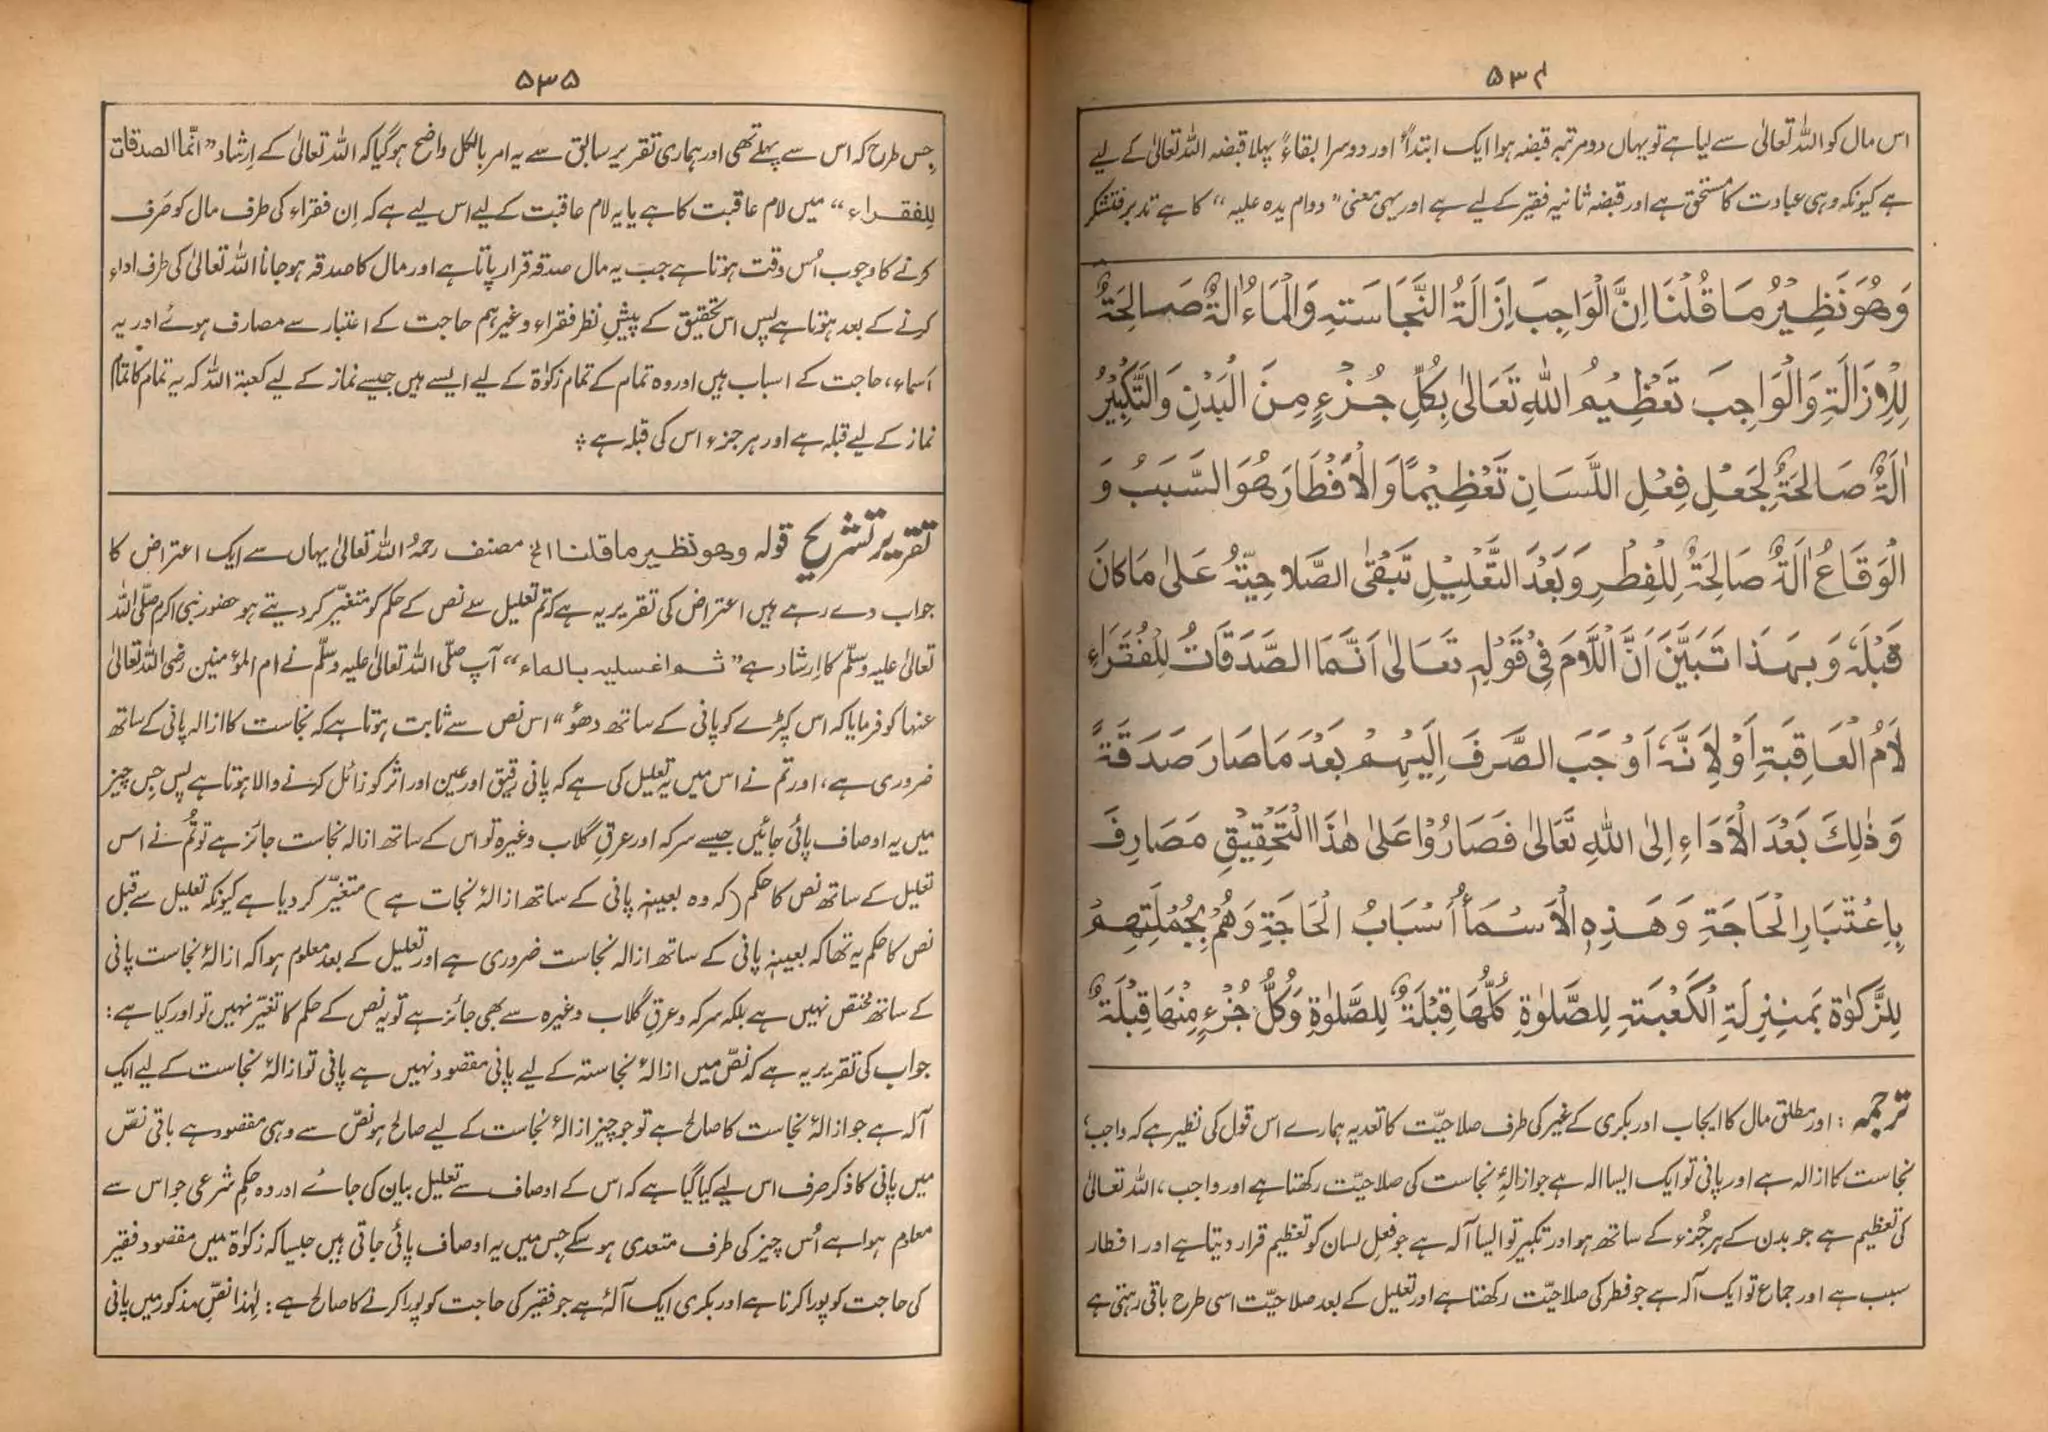 ۵۳۴
اس مال کو اللہ تعالیٰ سے لیا ہے تو یہاں دو مرتبہ قبضہ ہوا ایک ابتداءً اور دوسرا بقاءً پہلا قبضہ اللہ تعالیٰ کے لیے
ہے کیونکہ وہی عبادت کا مستحق ہے اور قبضہ ثانیہ فقیر کے لیے ہے اور یہی معنی ”دوام یدہ علیہ“ کا ہے تدبر فتشکر
وَهُوَ نَظِيْرُ مَا قُلْنَا اِنَّ الْوَاجِبَ اِزَالَةُ النَّجَاسَتِهِ وَالْمَاءُ اٰلَةٌ صَالِحَةٌ
لِلْاِزَالَةِ وَالْوَاجِبَ تَعْظِيْمُ اللهِ تَعَالٰى بِكُلِّ جُزْءٍ مِنَ الْبَدْنِ وَالتَّكْبِيْرُ
اٰلَةٌ صَالِحَةٌ لِجَعْلِ فِعْلِ اللِّسَانِ تَعْظِيْمًا وَالْاَفْطَارَ هُوَ السَّبَبُ وَ
الْوَقَاعُ اٰلَةٌ صَالِحَةٌ لِلْفِطْرِ وَبَعْدَ التَّعْلِيْلِ تَبْقٰى الصَّلَاحِيَّةُ عَلٰى مَا كَانَ
قَبْلَهٗ وَبِهَذَا تَبَيَّنَ اَنَّ اللَّامَ فِيْ قَوْلِهٖ تَعَالٰى اَنَّمَا الصَّدَقَاتُ لِلْفُقَرَاءِ
لَامُ الْعَاقِبَةِ اَوْ لِاَنَّهٗ اَوْجَبَ الصَّرفَ اِلَيْهِمْ بَعْدَ مَا صَارَ صَدَقَةً
وَذٰلِكَ بَعْدَ الْاَدَاءِ اِلَى اللهِ تَعَالٰى فَصَارُوْا عَلٰى هٰذَا التَّحْقِيْقِ مَصَارِفَ
بِاِعْتَبَارِ الْحَاجَةِ وَهَذِهِ الْاَسْمَأُ اَسْبَابُ الْحَاجَةِ وَهُمْ بِجُمْلَتِهِمْ
لِلزَّكٰوةِ بِمَنْزِلَةِ الْكَعْبَتِهِ لِلصَّلٰوةِ كُلُّهَا قِبْلَةٌ لِلصَّلٰوةِ وَكُلُّ جُزْءٍ مِنْهَا قِبْلَةٌ
ترجمہ : اور مطلق مال کا ایجاب اور بکری کے غیر کی طرف صلاحیّت کا تعدیہ ہمارے اس قول کی نظیر ہے کہ واجب،
نجاست کا ازالہ ہے اور پانی تو ایک ایسا الہ ہے جو ازالۂِ نجاست کی صلاحیّت رکھتا ہے اور واجب، اللہ تعالیٰ
کی تعظیم ہے جو بدن کے ہر جُزء کے ساتھ ہو اور تکبیر تو ایسا آلہ ہے جو فعلِ لسان کو تعظیم قرار دیتا ہے اور افطار
سبب ہے اور جماع تو ایک آلہ ہے جو فطر کی صلاحیّت رکھتا ہے اور تعلیل کے بعد صلاحیّت اسی طرح باقی رہتی ہے
۵۳۵
جِس طرح کہ اس سے پہلے تھی اور ہماری تقریر سابق سے یہ امر بالکل واضح ہوگیا کہ اللہ تعالیٰ کے اِرشاد ”انّما الصدقات
للفقراء“ میں لام عاقبت کا ہے یا یہ لام عاقبت کے لیے اس لیے ہے کہ اِن فقراء کی طرف مال کو صَرف
کرنے کا وجوب اُس وقت ہوتا ہے جب یہ مال صدقہ قرار پاتا ہے اور مال کا صدقہ ہوجانا اللہ تعالیٰ کی طرف اداء
کرنے کے بعد ہوتا ہے پس اس تحقیق کے پیشِ نظر فقراء وغیرہم حاجت کے اعتبار سے مصارف ہوئے اور یہ
اَسماء، حاجت کے اسباب ہیں اور وہ تمام کے تمام زکوٰۃ کے لیے ایسے ہیں جیسے نماز کے لیے کعبۃ اللہ کہ یہ تمام کا تمام
نماز کے لیے قبلہ ہے اور ہر جزء اس کی قبلہ ہے ؞
تقریر تشریح قولہ وھو نظیر ما قلنا الخ مصنف رحمہُ اللہ تعالیٰ یہاں سے ایک اعتراض کا
جواب دے رہے ہیں اعتراض کی تقریر یہ ہے کہ تم تعلیل سے نص کے حکم کو متغیّر کر دیتے ہو حضور نبی اکرم صلّی اللہ
تعالیٰ علیہ وسلّم کا اِرشاد ہے ”ثم اغسلیہ بالماء“ آپ صلّی اللہ تعالیٰ علیہ وسلّم نے ام المؤمنین رضی اللہ تعالیٰ
عنہا کو فرمایا کہ اس کپڑے کو پانی کے ساتھ دھوُ“ اس نص سے ثابت ہوتا ہے کہ نجاست کا ازالہ پانی کے ساتھ
ضروری ہے، اور تم نے اس میں یہ تعلیل کی ہے کہ پانی رقیق اور عین اور اثر کو زائل کرنے والا ہوتا ہے پس جس چیز
میں یہ اوصاف پائی جائیں جیسے سرکہ اور عرقِ گلاب وغیرہ تو اس کے ساتھ ازالہ نجاست جائز ہے تو تُم نے اس
تعلیل کے ساتھ نص کا حکم (کہ وہ بعینہٖ پانی کے ساتھ ازالۂ نجات ہے) متغیّر کر دیا ہے کیونکہ تعلیل سے قبل
نص کا حکم یہ تھا کہ بعینہٖ پانی کے ساتھ ازالہ نجاست ضروری ہے اور تعلیل کے بعد معلوم ہوا کہ ازالۂ نجاست پانی
کے ساتھ مختص نہیں ہے بلکہ سرکہ و عرقِ گلاب وغیرہ سے بھی جائز ہے تو یہ نص کے حکم کا تغیّر نہیں تو اور کیا ہے :
جواب کی تقریر یہ ہے کہ نصّ میں ازالۂ نجاستہ کے لیے پانی مقصود نہیں ہے پانی تو ازالۂ نجاست کے لیے ایک
آلہ ہے جو ازالۂ نجاست کا صالح ہے تو جو چیز ازالۂ نجاست کے لیے صالح ہو نصّ سے وہی مقصود ہے باقی نصّ
میں پانی کا ذکر صرف اس لیے کیا گیا ہے کہ اس کے اوصاف سے تعلیل بیان کی جائے اور وہ حکم شرعی جو اس سے
معلوم ہوا ہے اُس چیز کی طرف متعدی ہو سکے جِس میں یہ اوصاف پائی جاتی ہیں جیسا کہ زکوٰۃ میں مقصود فقیر
کی حاجت کو پورا کرنا ہے اور بکری ایک آلۂ ہے جو فقیر کی حاجت کو پورا کرنے کا صالح ہے : لہٰذا نصِّ مذکور میں پانی